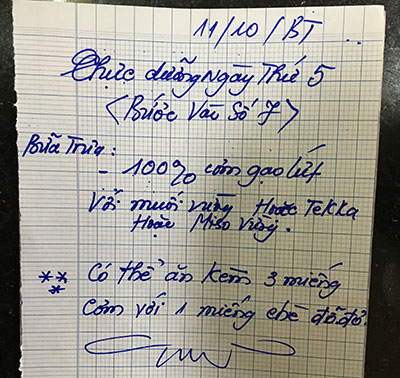 11/10/BT
Thực dưỡng Ngày Thứ 5
<Bước Vào Số 7>
Bữa Trưa:
- 100% cơm gạo lứt
Với muối vừng Hoặc Tekka
Hoặc Miso Vừng.
*** Có thể ăn kèm 3 miếng
Cơm với 1 miếng chè đỗ đỏ.